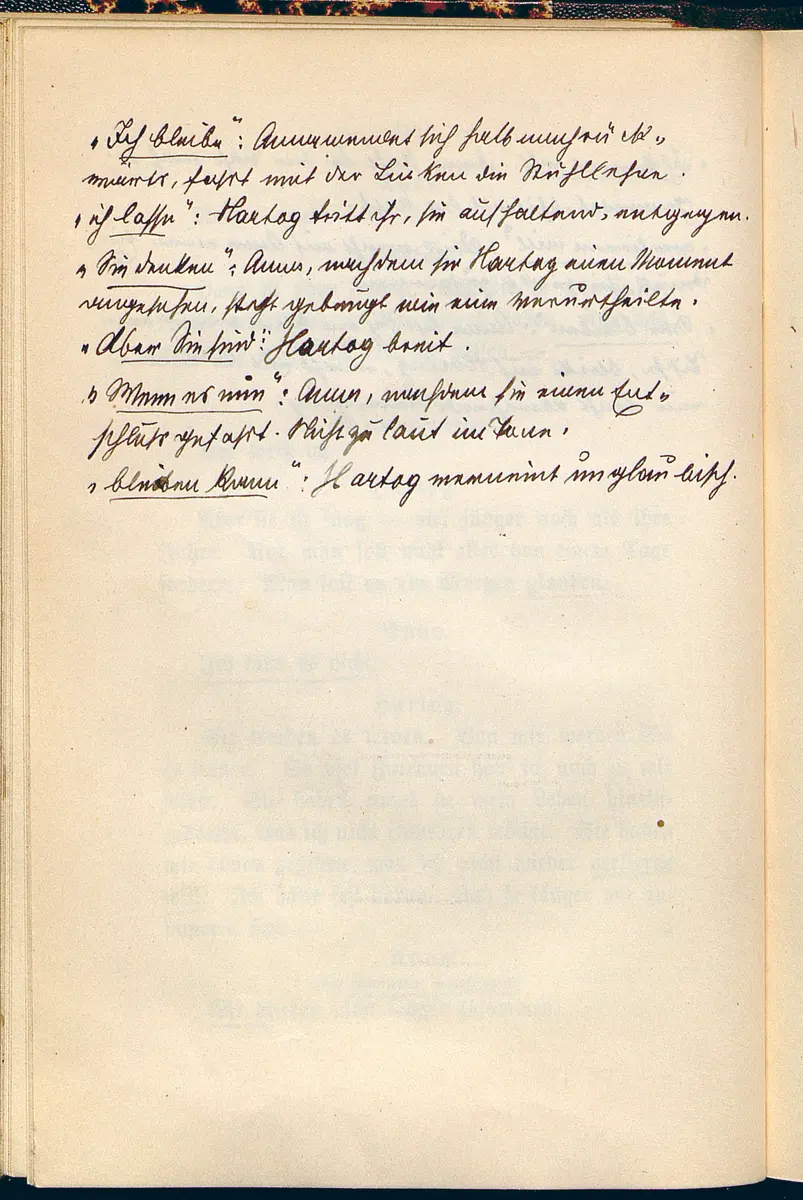 „Ich bleibe“: Anna wendet sich halb nach rück-
wärts, fasst mit der Linken die Stuhllehne.
„ich lasse“: Hartog tritt ihr, sie aufhaltend, entgegen.
„Sie denken“: Anna, nachdem sie Hartog einen Moment
angesehen, steht gebeugt wie eine Verurtheilte.
„Aber Sie sind“: Hartog breit.
„Wenn es nun“: Anna, nachdem sie einen Ent-
schluss gefasst. Nicht zu laut im Tone.
„bleiben kann“: Hartog verneint unglaubisch.